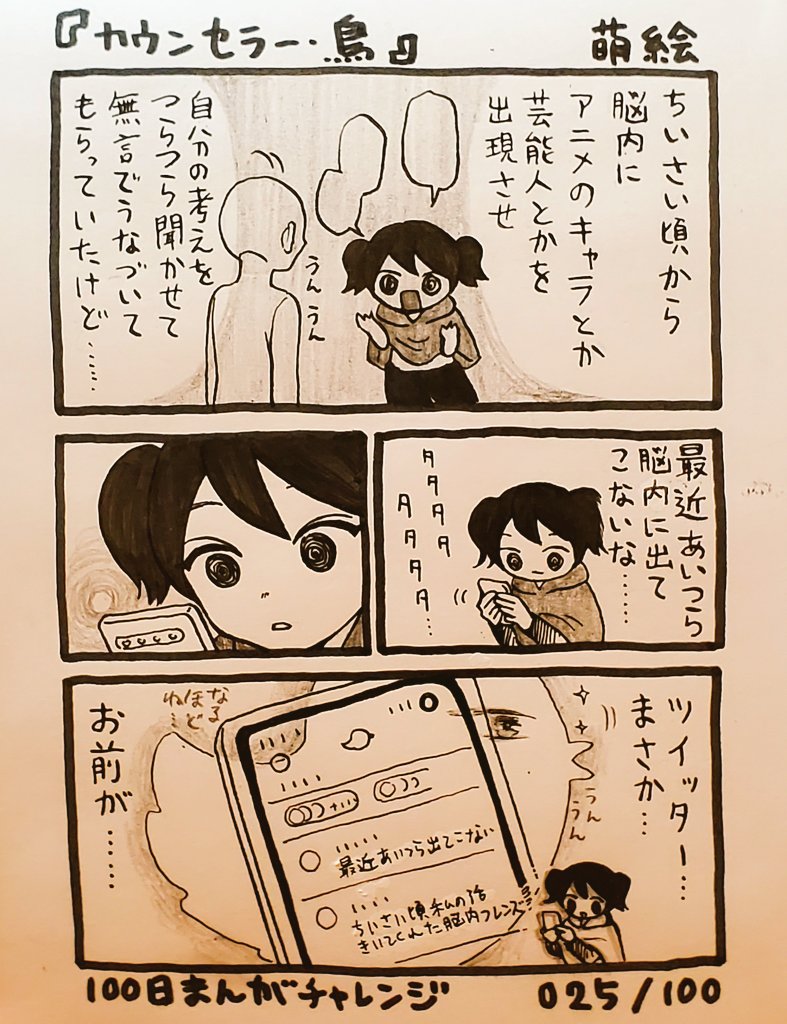 『カウンセラー・鳥』
萌絵
ちいさい頃から
脳内に
アニメのキャラとか
芸能人とかを
出現させ
自分の考えを
つらつら聞かせて
無言でうなづいて
もらっていたけど……
うんうん
最近あいつら
脳内に出て
こないな……
タタタタ
タタタタ…
ツイッター…
まさか…
うんうん
なる
ほど
ね…
お前が……
最近あいつら出てこない
ちいさい頃私の話
きいてくれた脳内フレンズ
100日まんがチャレンジ
025/100